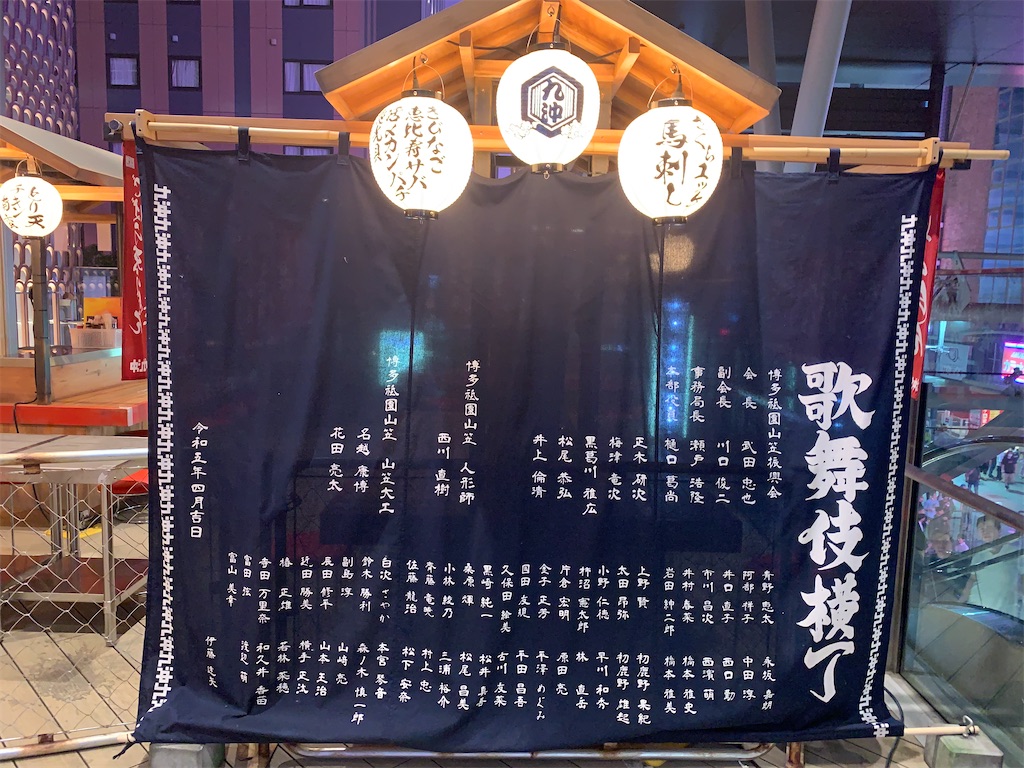 歌舞伎横丁
博多祗園山笠振興会
会長 武田忠也
副会長 川口俊二
事務局長 瀬戸浩隆
本部代直 樋口葛尚
正木研次
梅津竜次
黒葛川雅広
松尾恭弘
井上倫清
博多祗園山笠 人形師
西川直樹
博多祗園山笠 山笠大工
名越康博
花田亮太
青野恵太 永坂嘉朗
阿部祥子 中田淳
井口直子 西口勳
市川昌次 西濱萌
井村春菜 橋本雅史
岩田紳二郎 橋本雅美
上野賢 初鹿野果紀
太田昂弥 初鹿野雄起
小野仁徳 早川和秀
柿沼憲太郎 林直岳
片倉宏明 原田亮
金子正芳 平澤めぐみ
国田友規 平田昌吾
久保田絵美 古川友菜
黒崎純一 松井真喜
桑原煇 松尾昌美
小林綾乃 三浦裕介
齊藤竜晄 村上忠
佐藤龍治 松下安奈
白次さやか 本宮琴音
鈴木勝利 森ノ木慎一郎
副島淳 山崎亮
辰田修平 山本王治
近田勝美 横手正汰
椿正雄 若林菜穂
寺田万里奈 和久井香苗
富田弦 渡辺萌
富山美幸
伊藤達矢
令和五年四月吉日
九沖
さくらユッケ
馬刺し
きびなご
恵比寿サバ
とり天